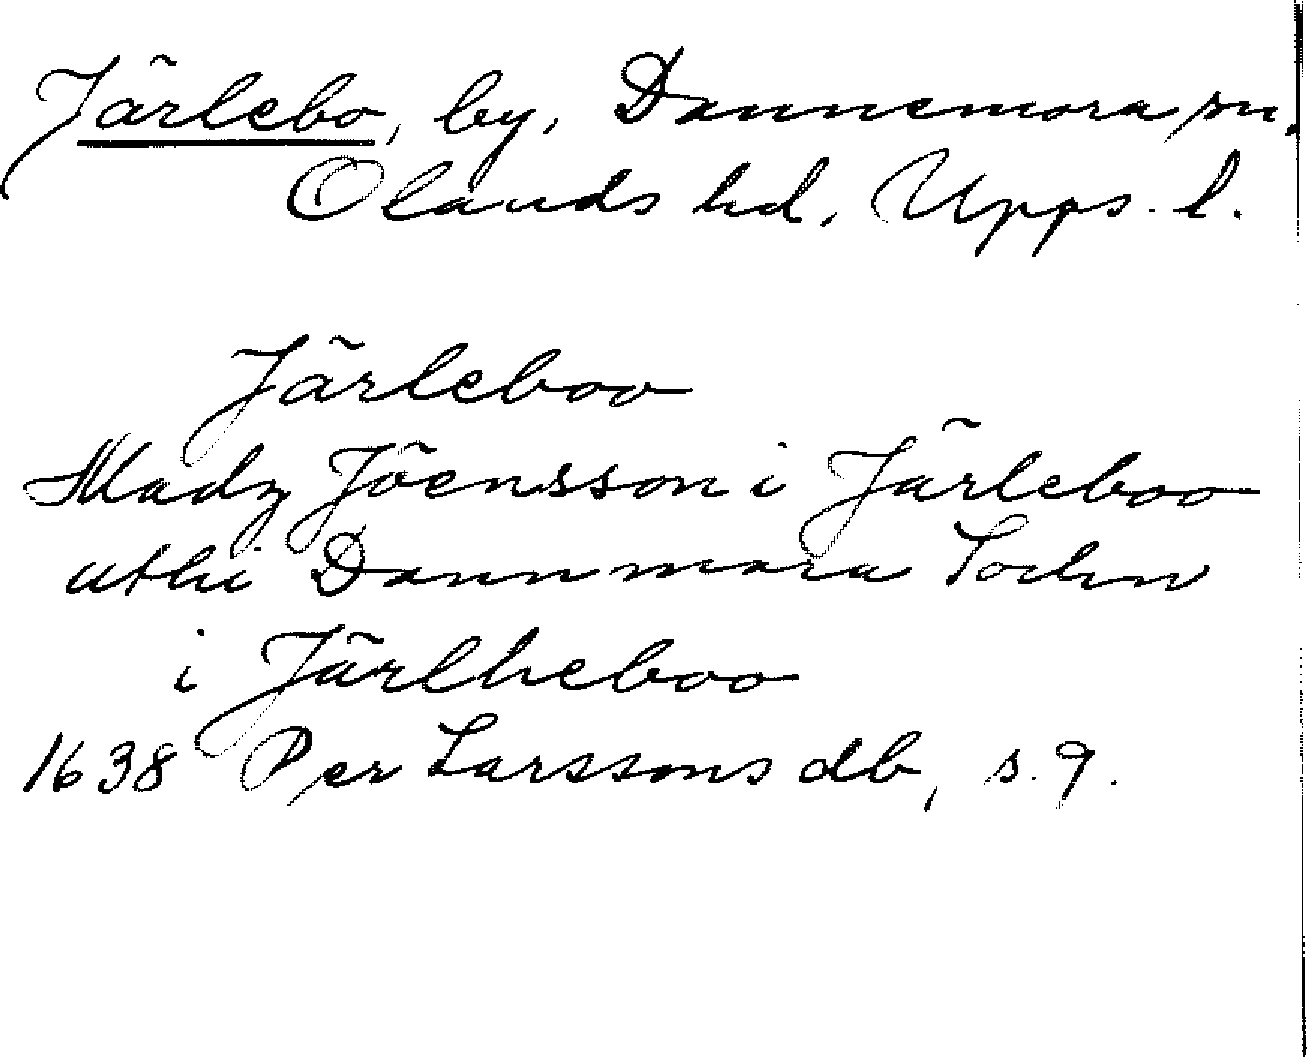 Järlebo, by, Dannemora sn.
Olands hd, Upps. l.
Järleboo
Madz Jöensson i Järleboo
uthi Dannmora Sochn
i Järlheboo
1638 Per Larssons db, s. 9.